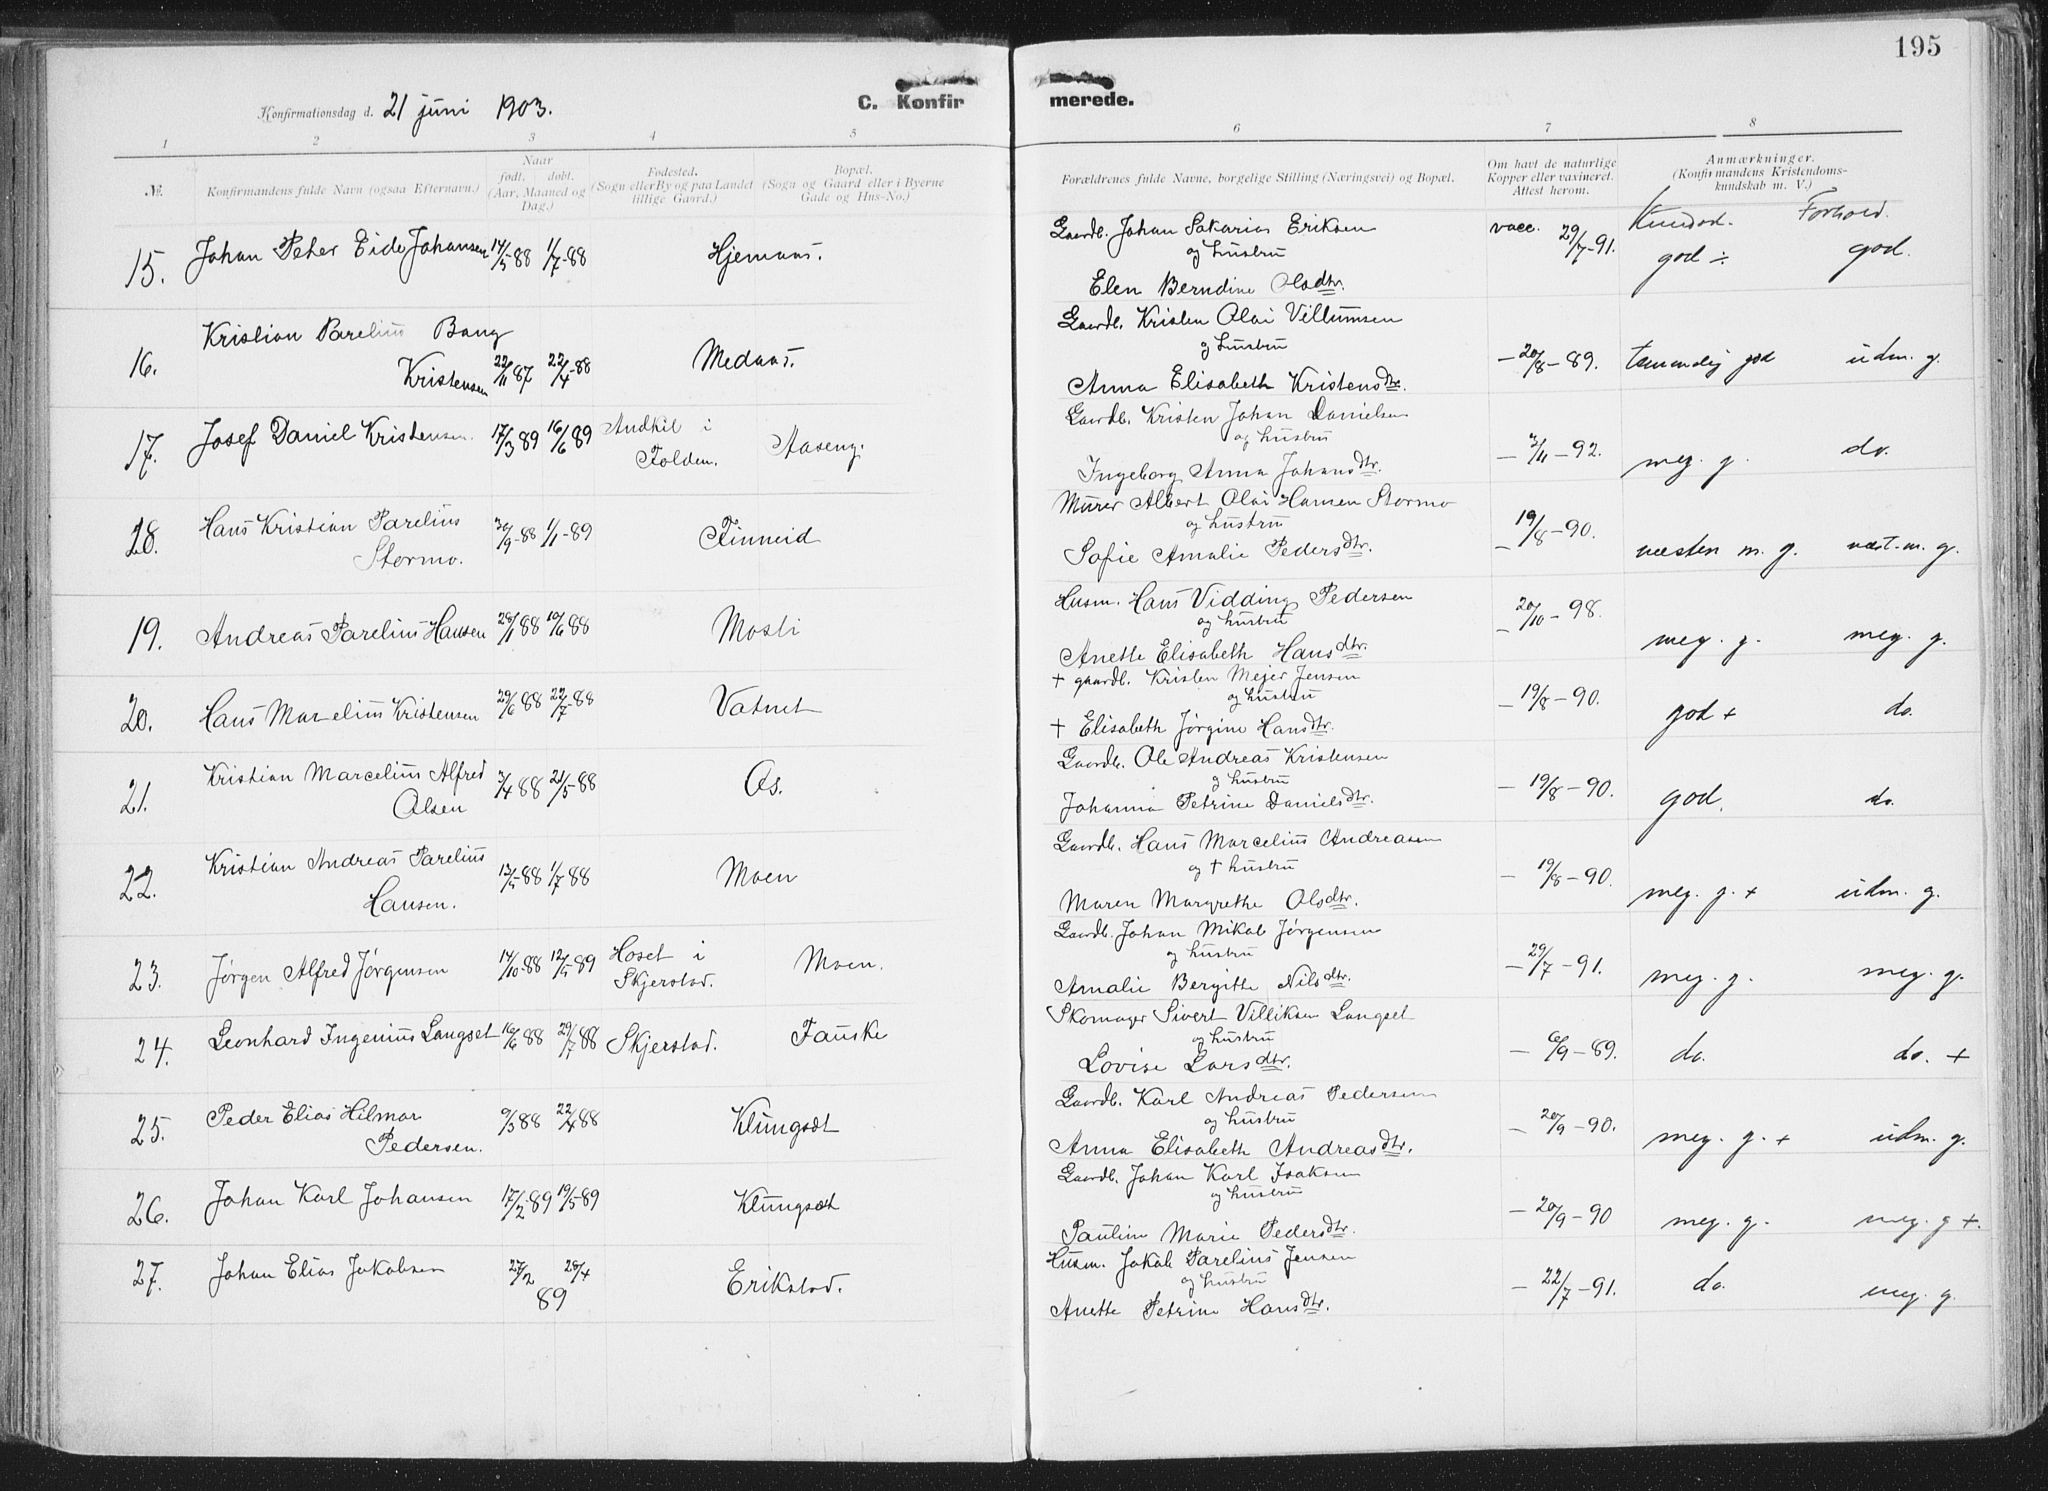 195
Konfirmationsdag d. 21 juni 1903.
C. Konfirmerede.
1 2 3 4 5 6 7 8
№.
Konfirmandens fulde Navn (ogsaa Efternavn.)
Naar
født. døbt.
(Aar, Maaned og Dag.)
Fødested.
(Sogn eller By og paa Landet
tillige Gaard.)
Bopæl.
(Sogn og Gaard eller i Byerne
Gade og Hus-No.)
Forældrenes fulde Navne, borgelige Stilling (Næringsvei) og Bopæl.
Om havt de naturlige
Kopper eller vaxineret.
Attest herom.
Anmærkninger.
(Konfirmandens Kristendoms-
kundskab m. V.)
Kundsk. Forhold.
15. Johan Peter Eide Johansen 14/5 88 1/7-88 Hjemaas.
Gaardb. Johan Sakarias Eriksen
og hustru
Elen Berndine Olsdtr.
vacc. 29/7-91. god ÷ god.
16. Kristian Parelius Bang
Kristensen 22/11 87 22/4-88 Medaas.
Gaardb. Kristen Olai Villumsen
og hustru
Anna Elisabeth Kristensdtr.
— 20/8-89. temmelig god udm. g.
17. Josef Daniel Kristensen. 17/3 89 16/6 89 Andkil i
Folden. Aaseng.
Gaardb. Kristen Johan Danielsen
og hustru
Ingeborg Anna Johansdtr.
— 3/11-92. meg. g. do.
18. Hans Kristian Parelius
Stormo. 30/9-88 1/1-89 Finneid
Murer Albert Olai Hansen Stormo
og hustru
Sofie Amalie Pedersdtr.
— 19/8-90. næsten m. g. næst. m. g.
19. Andreas Parelius Hansen 28/1 88 10/6 88 Mosti
Husm. Hans Vidding Pedersen
og hustru
Anette Elisabeth Hansdtr.
— 20/10-98. meg. g. meg. g.
20. Hans Marelius Kristensen 29/6 88 22/7-88 Vatnet
† gaardb. Kristen Mejer Jensen
og hustru
† Elisabeth Jørgine Hansdtr.
— 19/8-90. god + do.
21. Kristian Marcelius Alfred
Olsen 3/4 88 21/5-88 Os.
Gaardb. Ole Andreas Kristensen
og hustru
Johanna Petrine Danielsdtr.
— 19/8-90. god. do.
22. Kristian Andreas Parelius
Hansen. 12/5-88 1/7-88 Moen
Gaardb. Hans Marcelius Andreasen
og † hustru
Maren Margrethe Olsdtr.
— 19/8-90. meg. g. + udm. g.
23. Jørgen Alfred Jørgensen 14/10-88 12/5-89 Hoset i
Skjerstad. Moen.
Gaardb. Johan Mikal Jørgensen
og hustru
Amalie Bergitte Nilsdtr.
— 29/7-91. meg. g. meg. g.
24. Leonhard Ingenius Langset 16/6 88 29/7-88 Skjerstad. Fauske
Skomager Sivert Villiksen Langset
og hustru
Lovise Larsdtr.
— 6/9-89. do. do. +
25. Peder Elias Hilmar
Pedersen. 9/3 88 22/4 88 Klungsæt
Gaardb. Karl Andreas Pedersen
og hustru
Anna Elisabeth Andreasdtr.
— 20/9-90. meg. g. + udm. g.
26. Johan Karl Johansen 17/2-89 19/5-89 Klungsæt
Gaardb. Johan Karl Isaksen
og hustru
Pauline Marie Pedersdtr.
— 20/9-90 meg. g. meg. g +.
27. Johan Elias Jakobsen 27/2 28/4
89 Erikstad.
Husm. Jakob Parelius Jensen
og hustru
Anette Petrine Hansdtr.
— 22/7-91. do. meg. g.